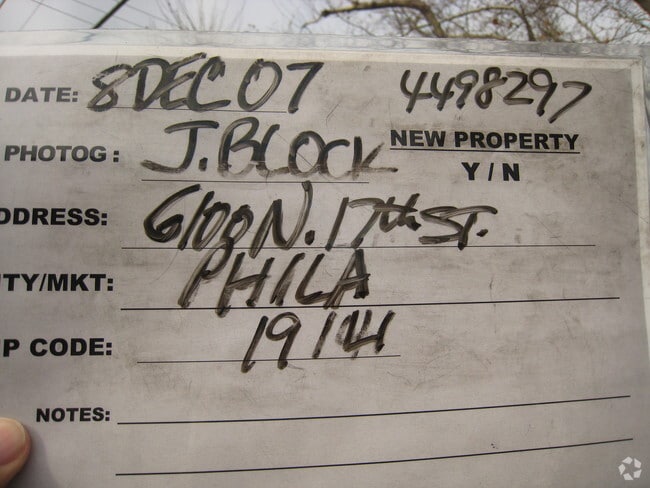 DATE: 8 DEC 07 4498297
PHOTOG: J. BLOCK NEW PROPERTY
Y / N
DDRESS: 6100 N. 17th ST.
TY/MKT: PHILA
P CODE: 19141
NOTES: